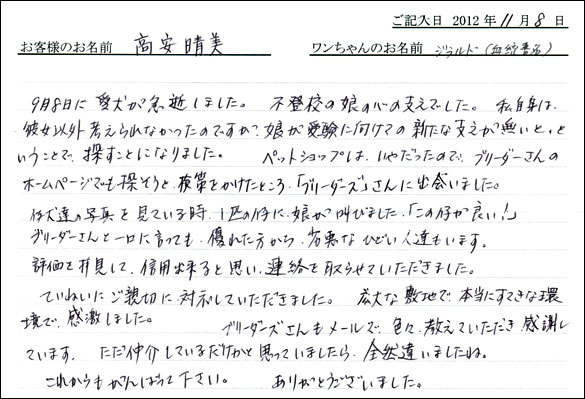 ご記入日 2012 年 11 月 8 日
お客様のお名前 高安晴美 ワンちゃんのお名前 ジェラルド(血統書名)
9月8日に愛犬が急逝しました。 不登校の娘の心の支えでした。 私自身は、
彼女以外考えられなかったのですが、娘が受験に向けての新たな支えが無いと。と
いうことで、探すことになりました。 ペットショップは、いやだったので、ブリーダーさんの
ホームページでも探そうと、検索をかけたところ、「ブリーダーズ」さんに出会いました。
仔犬達の写真を見ている時、1匹の仔に、娘が叫びました。「この仔が良い!」
ブリーダーさんと一口に言っても、優れた方から、劣悪なひどい人達もいます。
評価を拝見して、信用出来ると思い、連絡を取らせていただきました。
ていねいにご親切に対示していただきました。 広大な敷地で、本当にすてきな環
境で、感激しました。 ブリーダーズさんもメールで、色々、教えていただき感謝し
ています。 ただ仲介しているだけかと思っていましたら、全然違いましたね。
これからもがんばって下さい。 ありがとうございました。